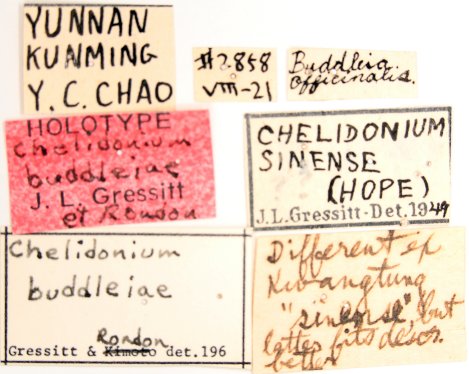 YUNNAN
KUNMING
Y. C. CHAO
#2858
VIII-21
Buddleia
officinalis.
HOLOTYPE
Chelidonium
buddleiae
J. L. Gressitt
et Rondon
CHELIDONIUM
SINENSE
(HOPE)
J.L.Gressitt-Det.1949
Chelidonium
buddleiae
Rondon
Gressitt & Kimoto det.196
Different ex
Kwangtung
"sinense" but
latter fits descr.
better